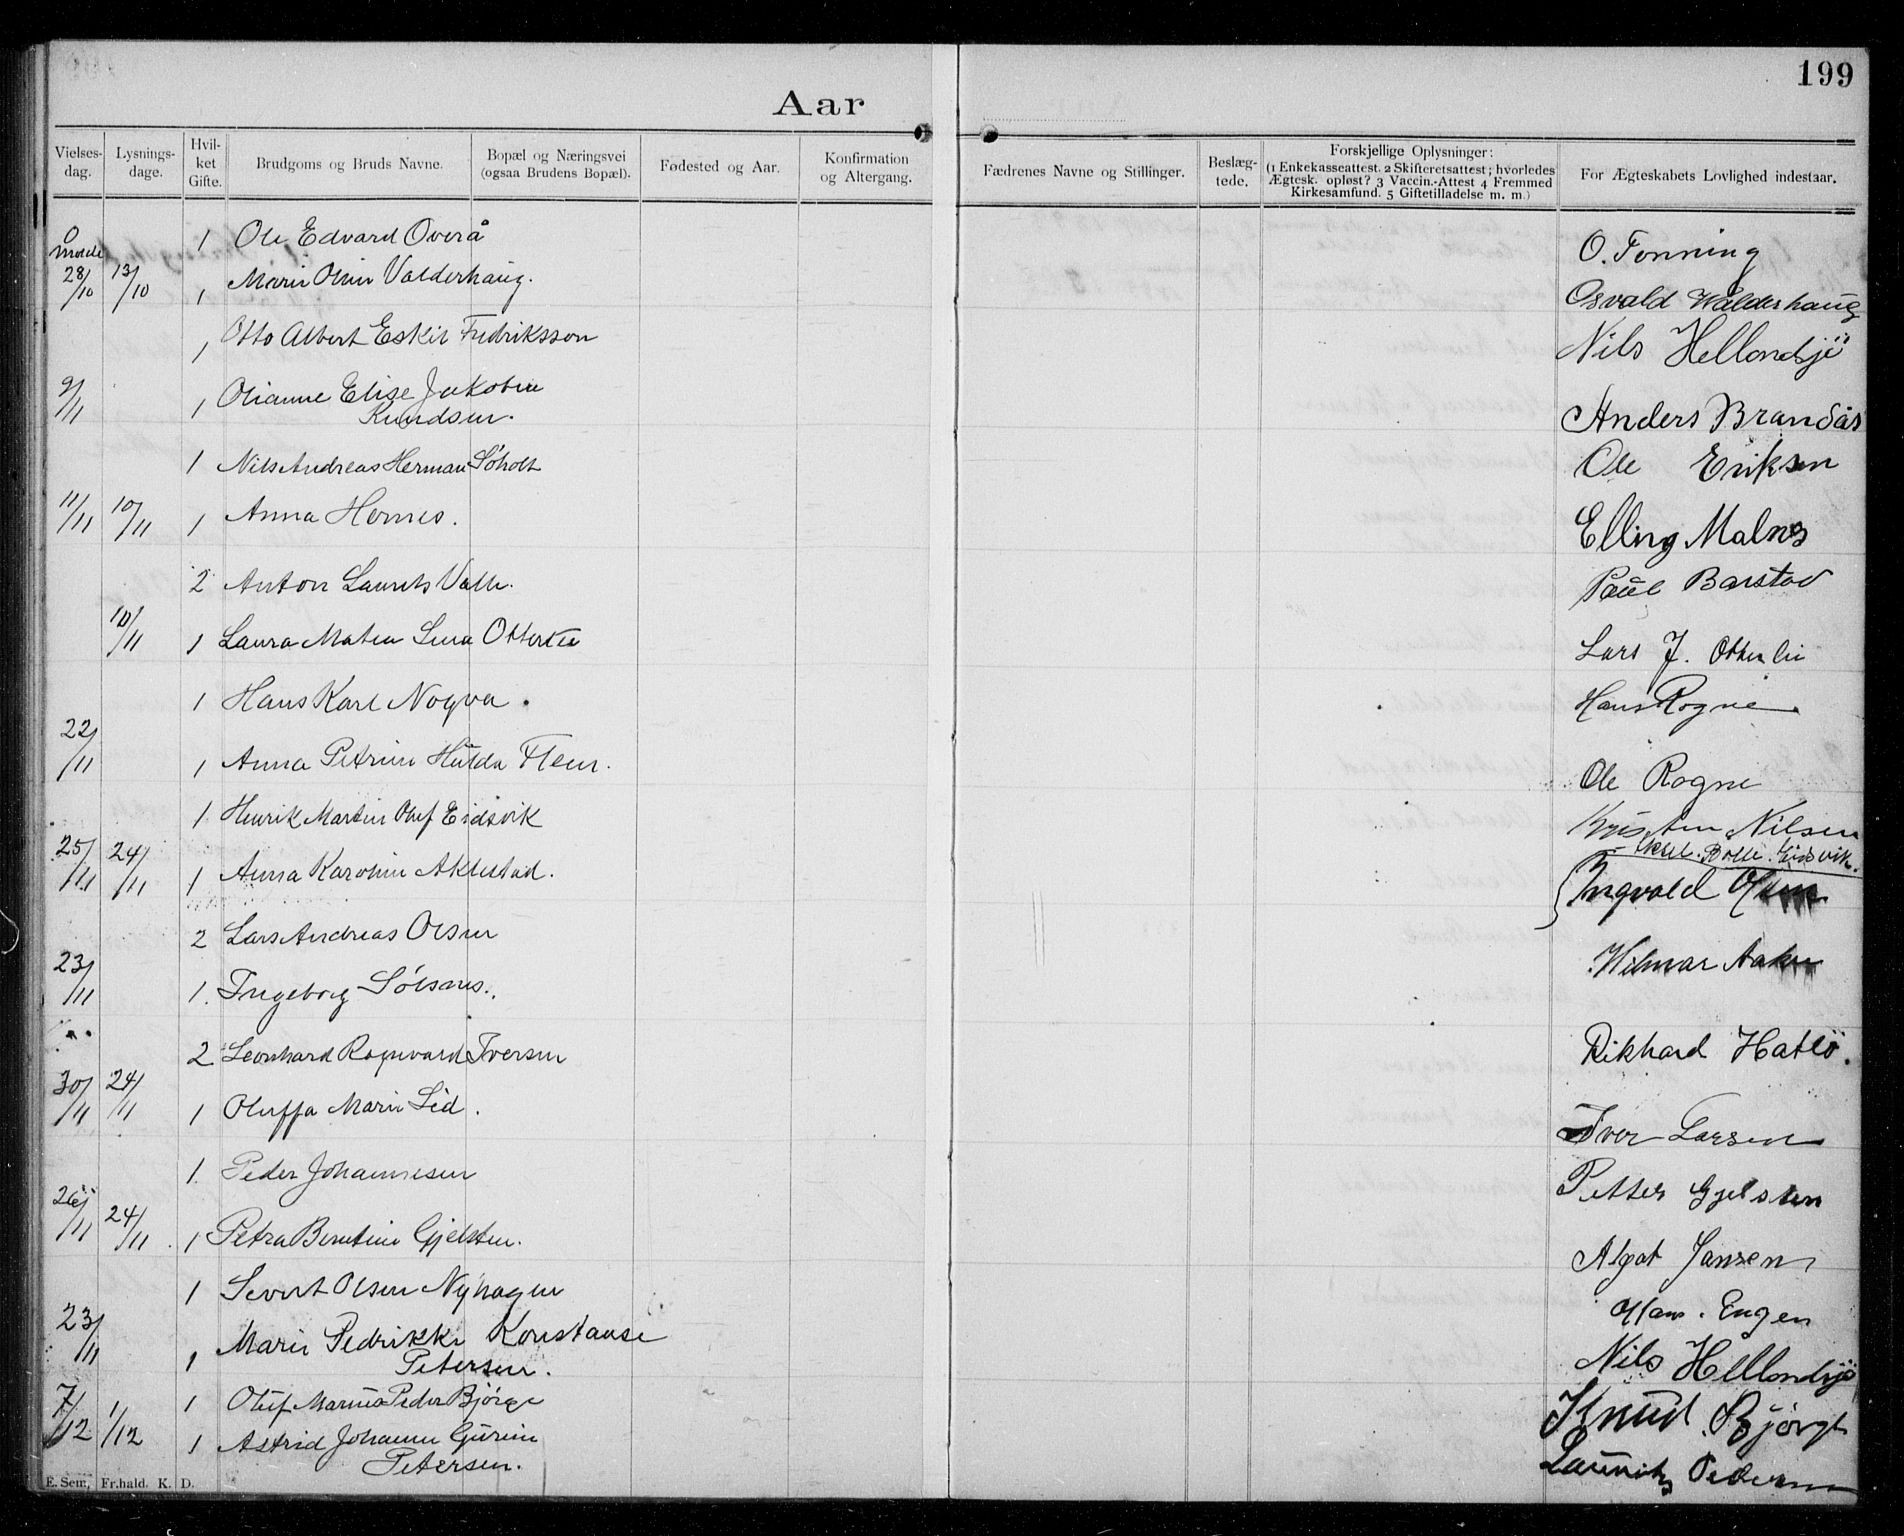 199
Aar
Vielses-
dag.
Lysnings-
dage.
Hvil-
ket
Gifte.
Brudgoms og Bruds Navne.
Bopæl og Næringsvei
(ogsaa Brudens Bopæl).
Fødested og Aar.
Konfirmation
og Altergang.
Fædrenes Navne og Stillinger.
Beslæg-
tede.
Forskjellige Oplysninger:
(1 Enkekasseattest. 2 Skifteretsattest; hvorledes
Ægtesk. opløst? 3 Vaccin.-Attest 4 Fremmed
Kirkesamfund. 5 Giftetilladelse m. m.)
For Ægteskabets Lovlighed indestaar.
Molde
1 Ole Edvard Overå O. Fonning
28/10 13/10 1 Marie Oline Valderhaug. Osvald Walderhaug
1 Otto Albert Eskil Fredriksson Nils Hellandsjö
9/11 1 Olianne Elise Jakobine
Knudsen. Anders Brandås
1 Nils Andreas Herman Söholt Ole Eriksen
11/11 10/11 1 Anna Hornes. Elling Malnes
2 Anton Laurits Valle. Paul Barstad
10/11 1 Laura Matea Lina Otterlei Lars J. Otterlei
1 Hans Karl Nogva. Hans Rogne
22/11 1 Anna Petrine Hulda Flem. Ole Rogne
1 Henrik Martin Oluf Eidsvik Kristen Nilsen
Bolle. Eidsvik.
25/11 24/11 1 Anna Karoline Aklestad. Ingvald Olsen
2 Lars Andreas Olsen
23/11 1. Ingeborg Solsnes. Hilmar
2 Leonhard Rognvard Iversen Rikhard Hatlö.
30/11 24/11 1 Oluffa Marie Lid. Iver Larsen
1. Peder Johannesen Petter Gjelsten
26/11 24/11 1 Petra Bentine Gjelsten. Algot Jansen
1 Severt Olsen Nyhagen Hans. Engen
23/11 1 Marie Pedrikke Konstanse
Petersen. Nils Hellandsjö
7/12 1/12 1 Oluf Marius Peder Bjørge Knud Bjørge
1 Astrid Johanne Gurine
Petersen. Lauritz Pedersen
E. Sem, Fr.hald. K. D.